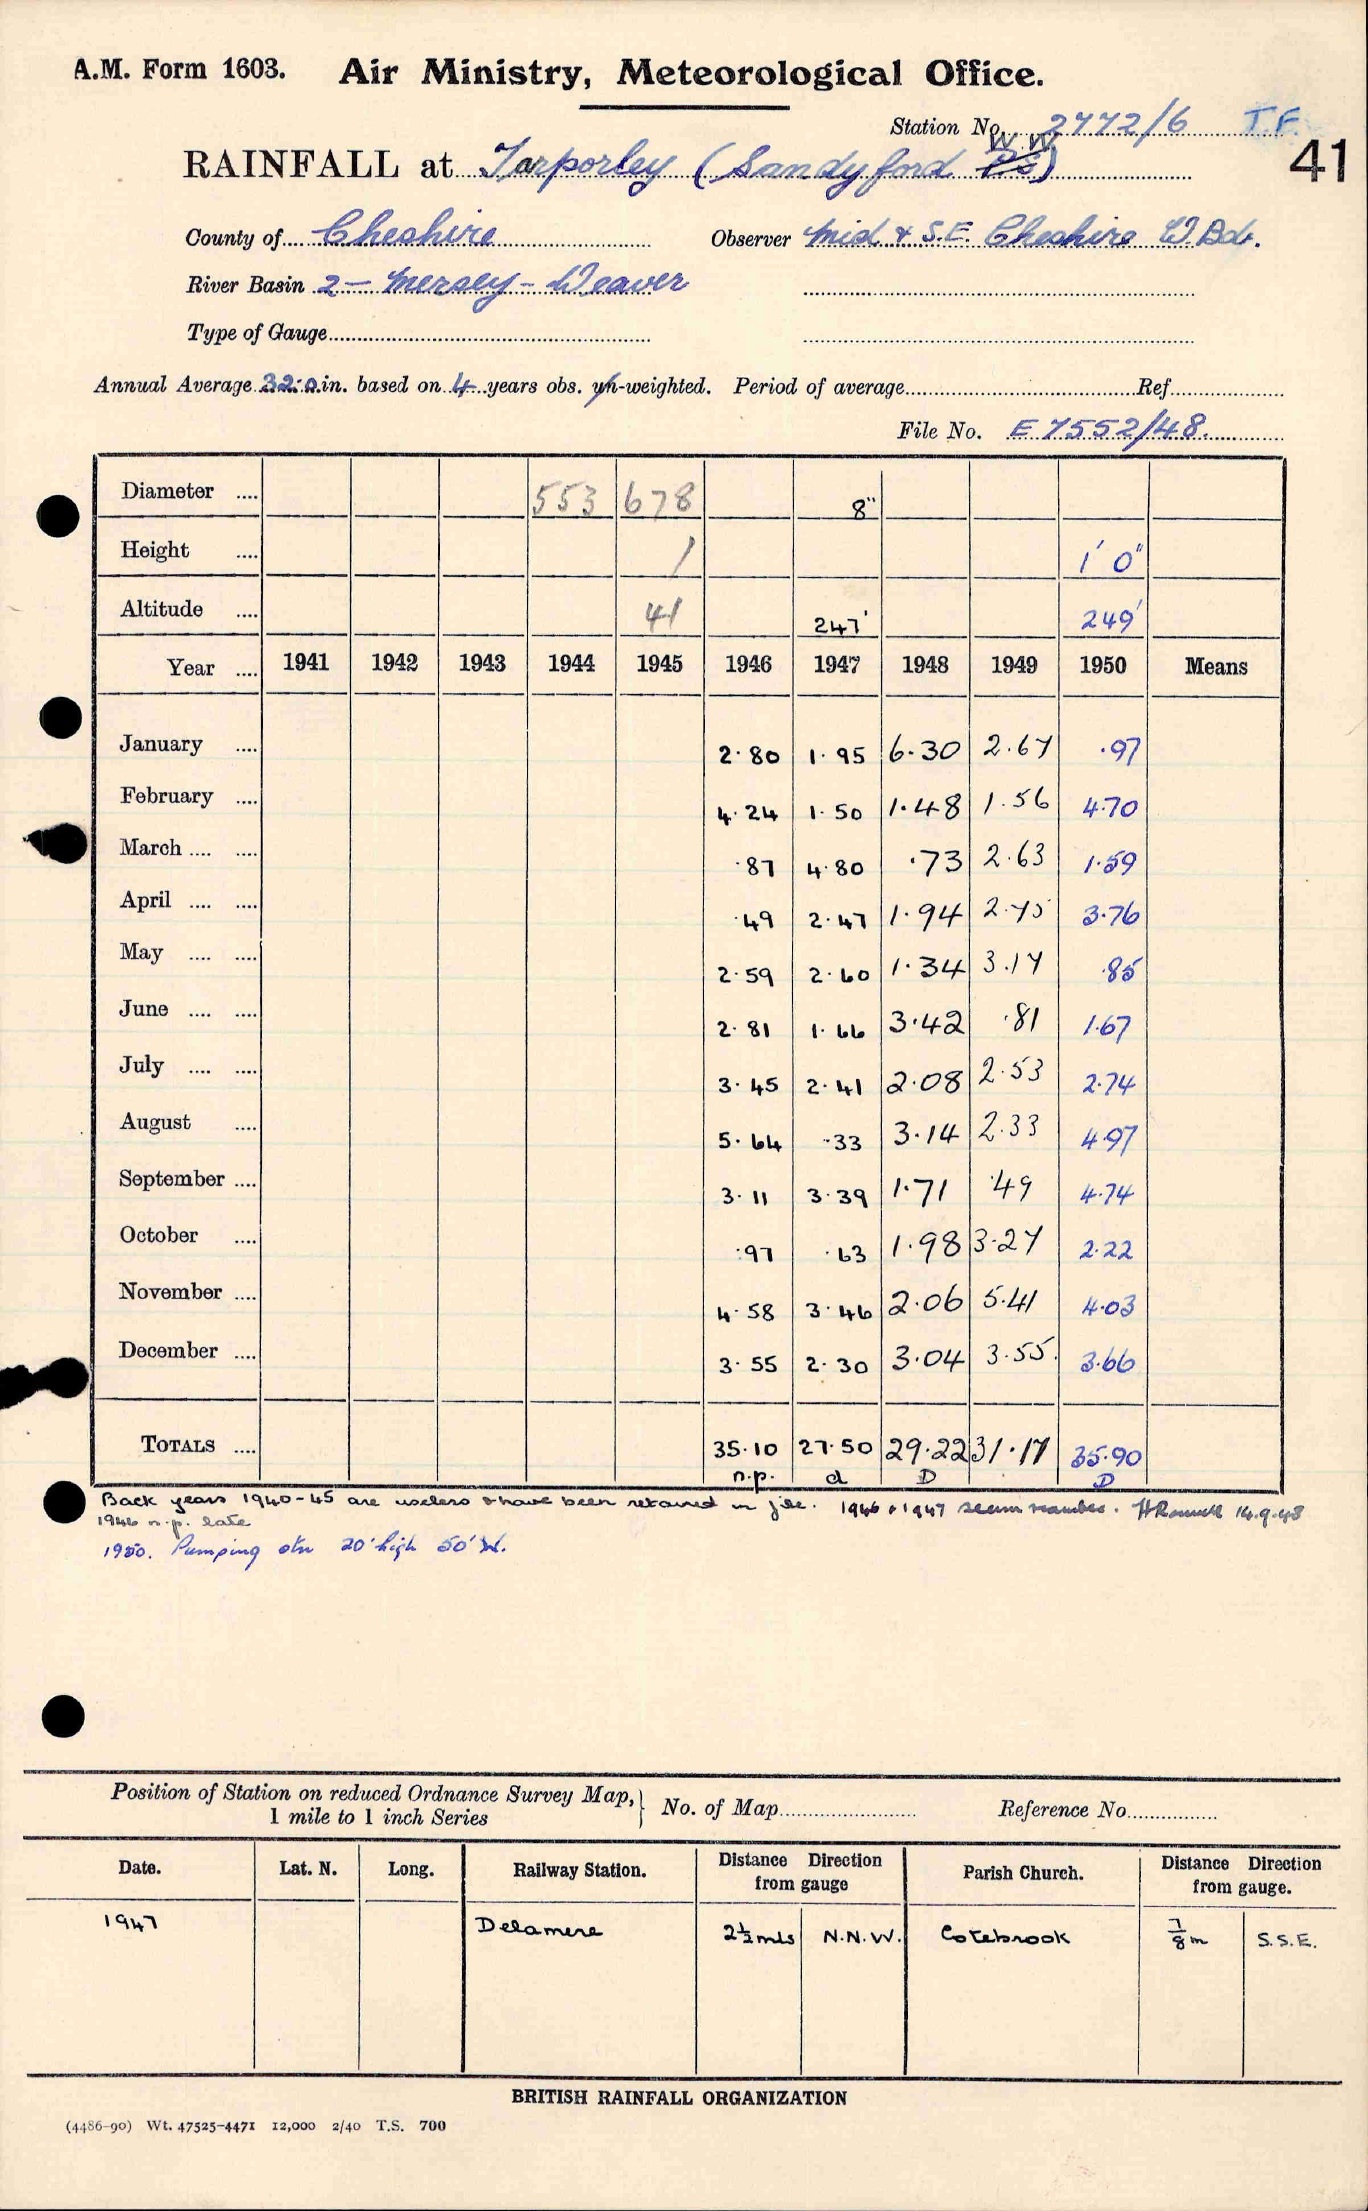 A.M. Form 1603. Air Ministry, Meteorological Office.
Station No. 2772/6 T.F.
41
W W
RAINFALL at Tarporley (Sandyford P.S)
County of Cheshire Observer Mid & S.E. Cheshire W Bd.
River Basin 2 - Mersey - Weaver
Type of Gauge
Annual Average 32.0 in. based on 4 years obs. un-weighted. Period of average Ref
File No. E 7552/48.
Diameter 553 678 8"
Height 1 1' 0"
Altitude 41 247' 249'
Year 1941 1942 1943 1944 1945 1946 1947 1948 1949 1950 Means
January 2.80 1.95 6.30 2.67 .97
February 4.24 1.50 1.48 1.56 4.70
March .87 4.80 .73 2.63 1.59
April .49 2.47 1.94 2.75 3.76
May 2.59 2.60 1.34 3.17 .85
June 2.81 1.66 3.42 .81 1.67
July 3.45 2.41 2.08 2.53 2.74
August 5.64 .33 3.14 2.33 4.97
September 3.11 3.39 1.71 .49 4.74
October .97 .63 1.98 3.27 2.22
November 4.58 3.46 2.06 5.41 4.03
December 3.55 2.30 3.04 3.55 3.66
TOTALS 35.10 27.50 29.22 31.17 35.90
n.p. d D D
Back years 1940-45 are useless & have been retained in file. 1946 & 1947 seem 14.9.48
1946 n.p. late
1950. Pumping stn 20' high 50' W.
Position of Station on reduced Ordnance Survey Map, 1 mile to 1 inch Series No. of Map Reference No.
Date. Lat. N. Long. Railway Station. Distance Direction from gauge Parish Church. Distance Direction from gauge.
1947 Delamere 2½ mls N.N.W. Cotebrook 7/8 m S.S.E.
BRITISH RAINFALL ORGANIZATION
(4486-90) Wt. 47525-4471 12,000 2/40 T.S. 700